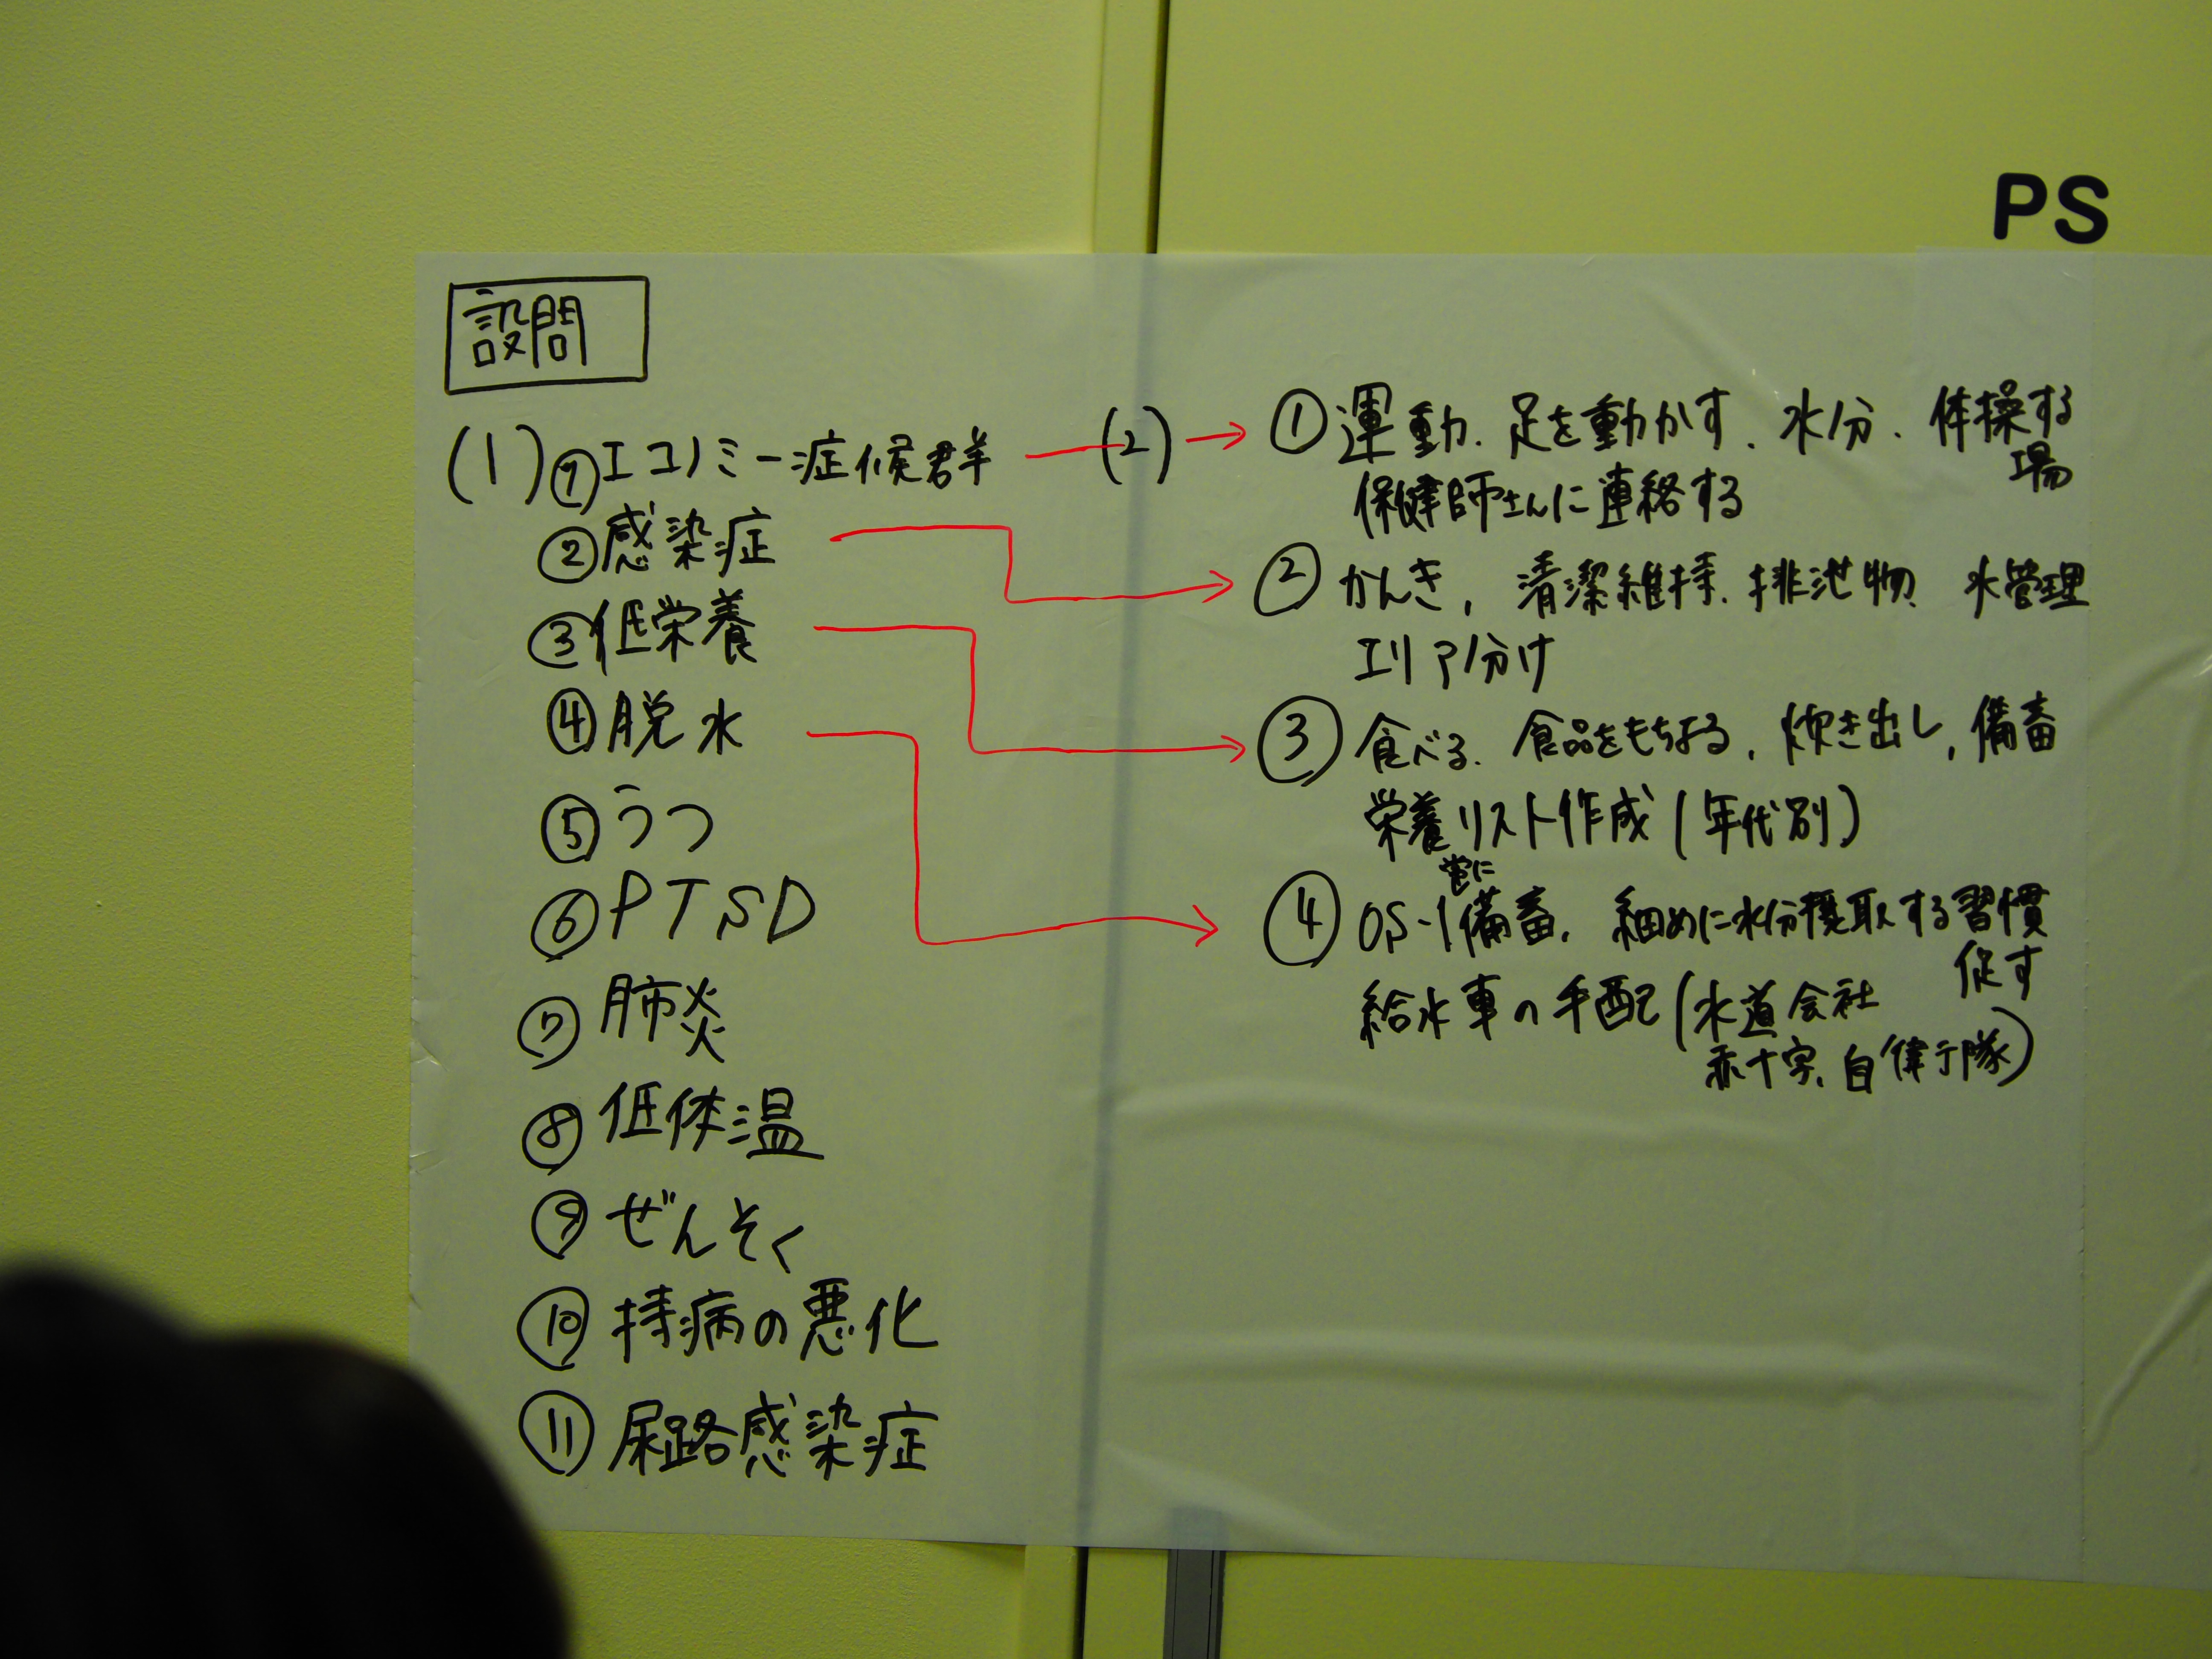 PS
設問
(1) ①エコノミー症候群
②感染症
③低栄養
④脱水
⑤うつ
⑥PTSD
⑦肺炎
⑧低体温
⑨ぜんそく
⑩持病の悪化
⑪尿路感染症
(2)
①運動、足を動かす、水分、体操する
場
保健師さんに連絡する
②かんき、清潔維持、排泄物、水管理
エリア分け
③食べる、食品をもちよる、炊き出し、備蓄
栄養リスト作成(年代別)
常に
④OS-1備蓄、細めに水分摂取する習慣
促す
給水車の手配(水道会社
赤十字、自衛隊)